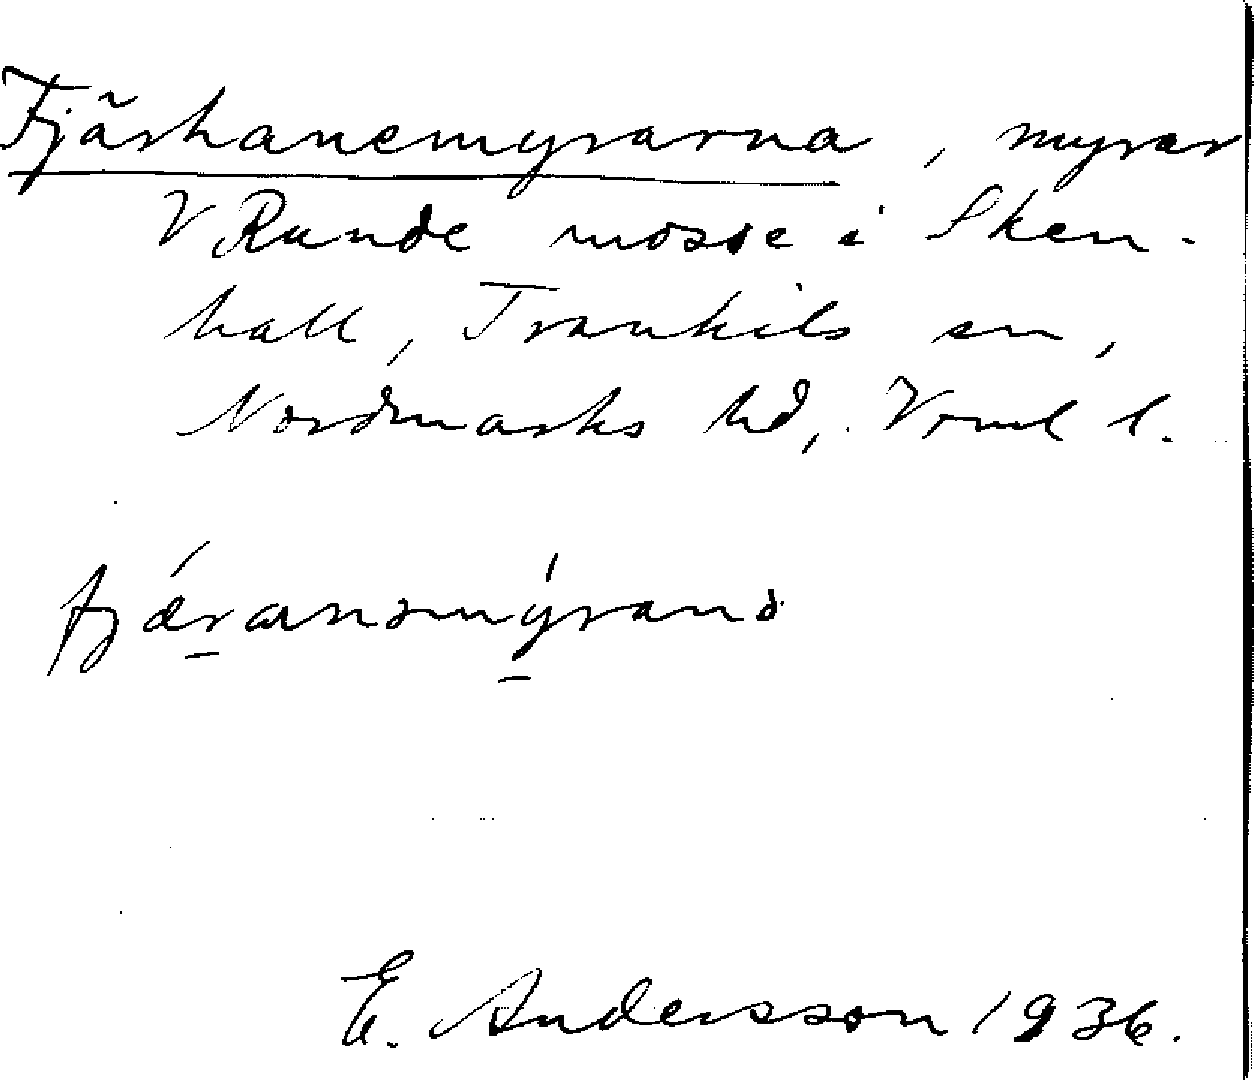 Fjärhanemyrarna, myrar
V Runde mosse i Sken-
hall, Trankils sn,
Nordmarks hd, Vrml l.
fjǽranǝmýranǝ
E. Andersson 1936.